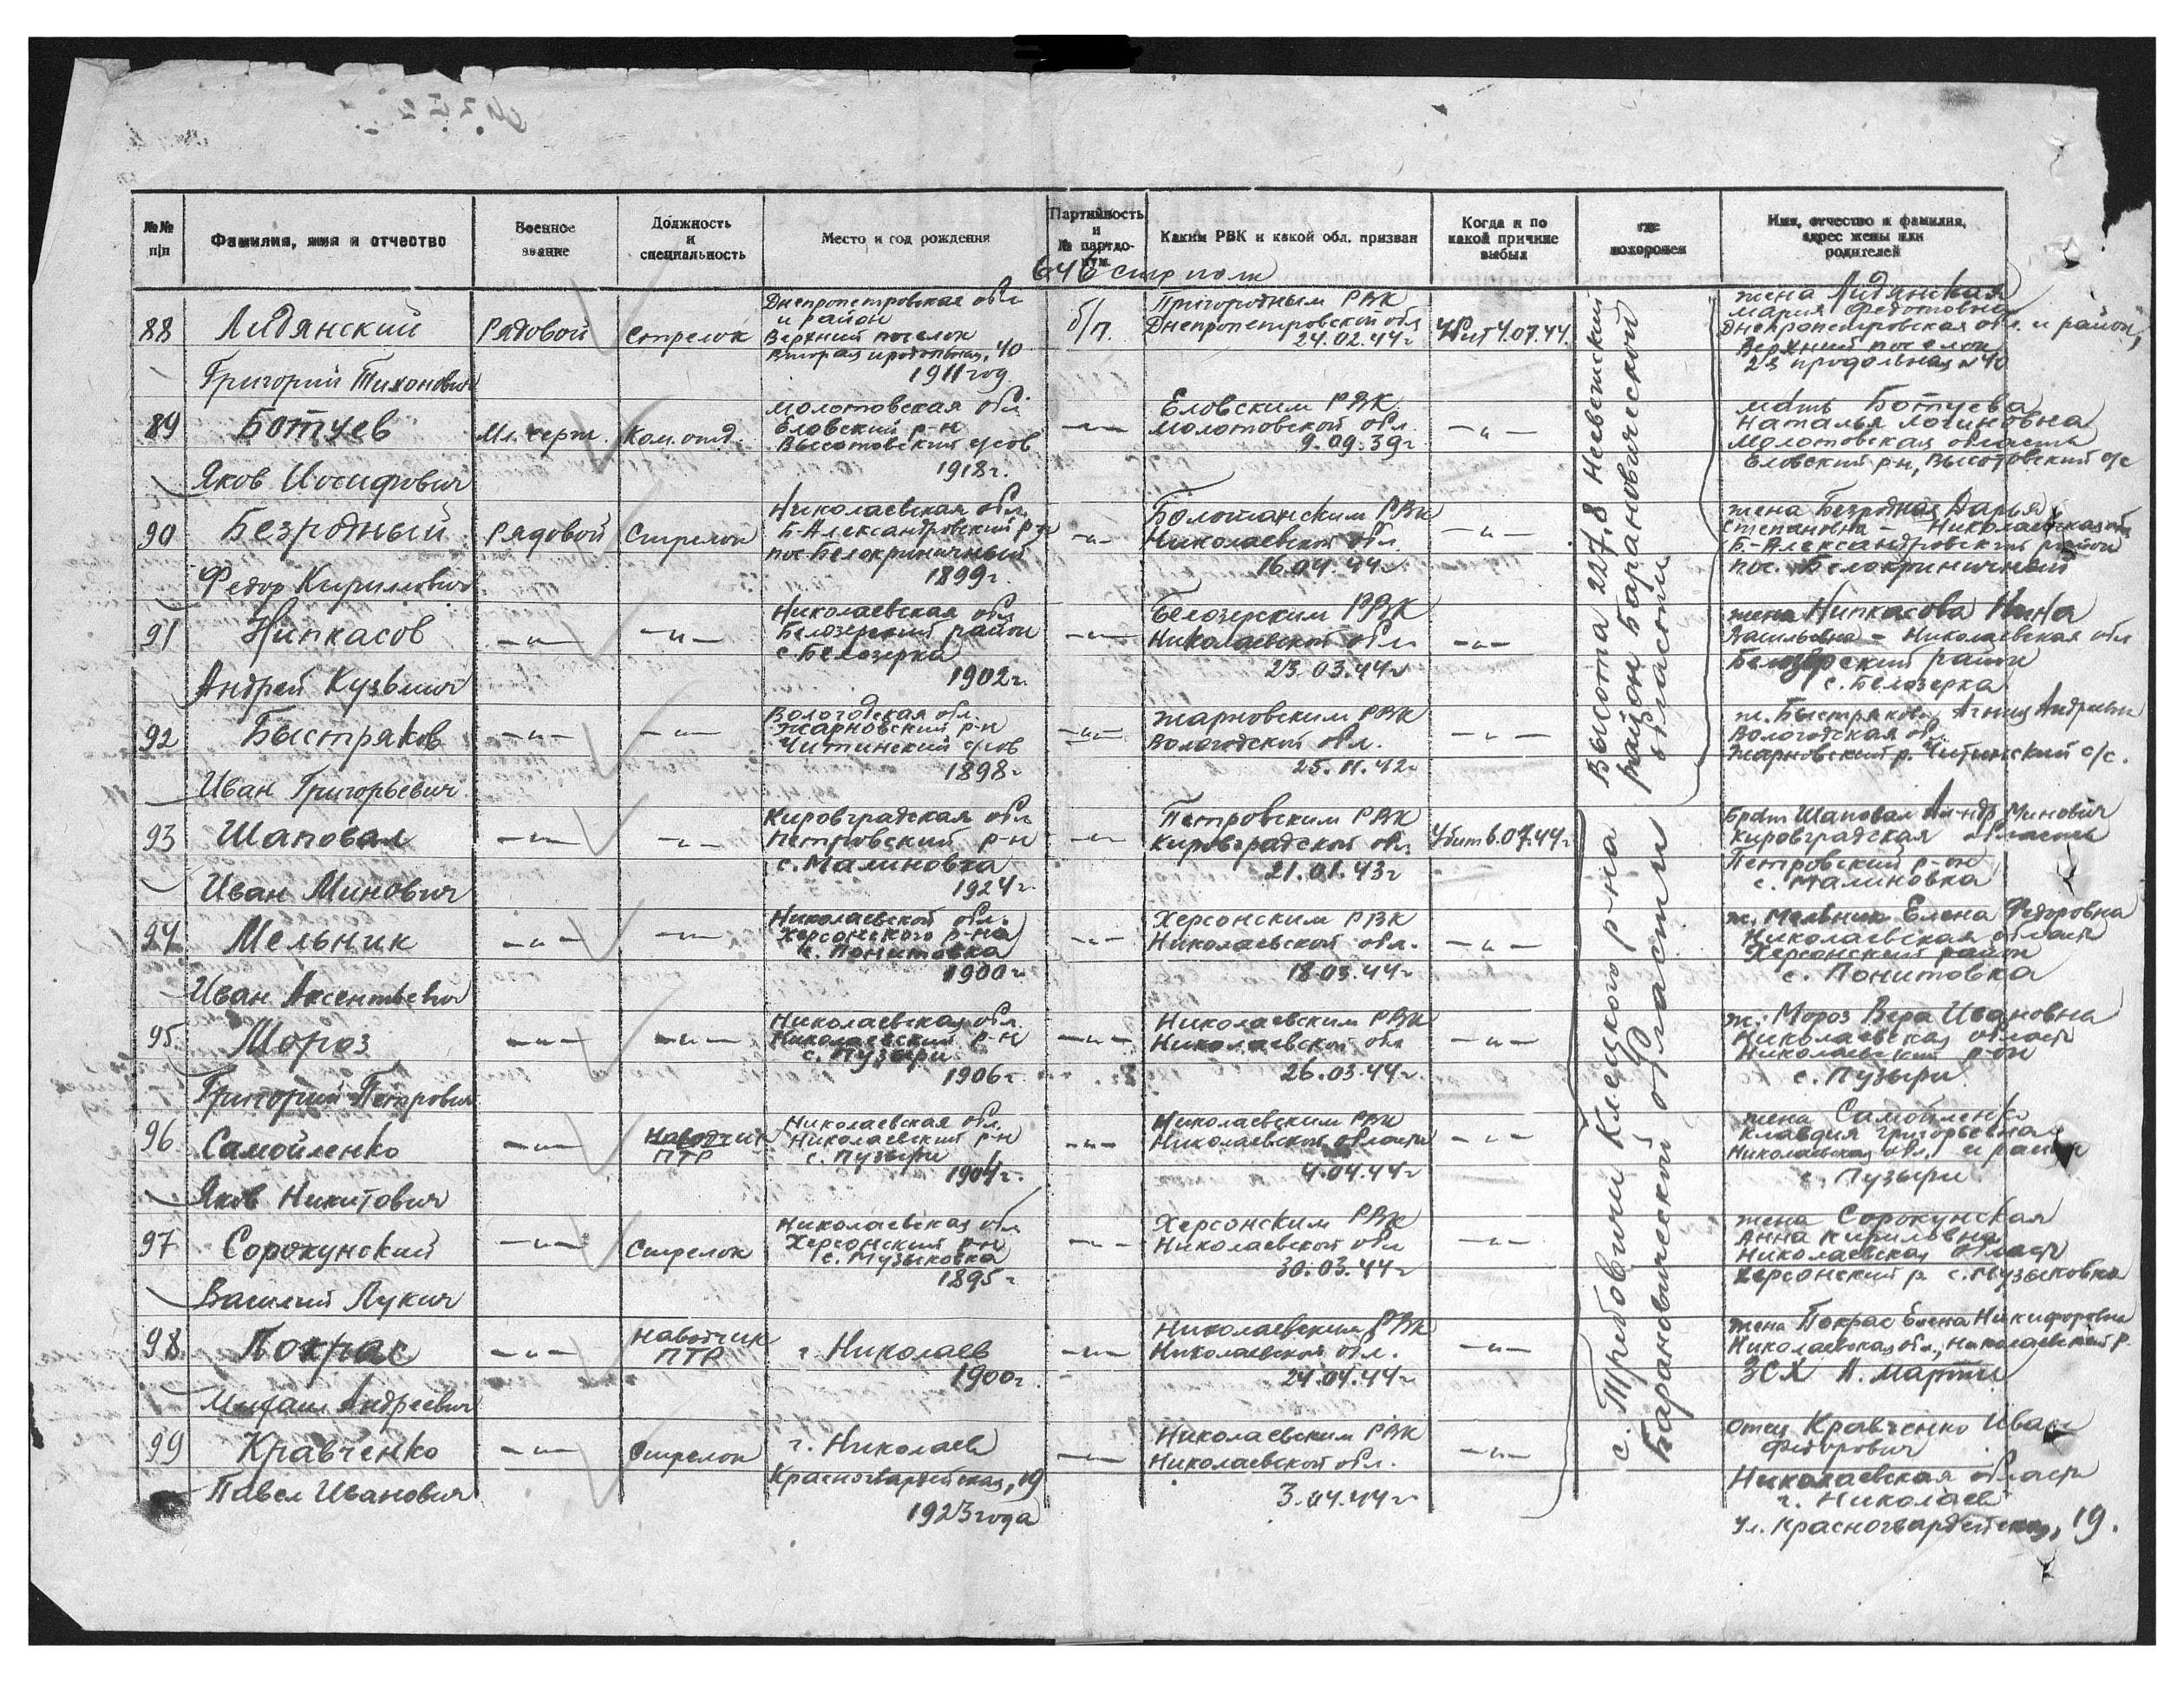 №№ п/п
Фамилия, имя и отчество
Военное звание
Должность и специальность
Место и год рождения
Партийность и № партдокум.
Каким РВК и какой обл. призван
Когда и по какой причине выбыл
где похоронен
Имя, отчество и фамилия, адрес жены или родителей
646 стр полк
88
Лидянский
Григорий Тихонович
Рядовой
Стрелок
Днепропетровская обл
и район
Верхний поселок
Вторая продольная, 40
1911 год
б/п.
Пригородным РВК
Днепропетровской обл
24.02.44г
Убит 4.07.44.
жена Лидянская
Мария Федотовна
Днепропетровская обл. и район,
Верхний поселок
2я продольная №40
89
Ботуев
Яков Иосифович
Мл. серж.
Ком. отд.
Молотовская обл
Еловский р-н
Высотовский с/сов
1918г.
—"—
Еловским РВК
Молотовской обл.
9.09.39г
—"—
мать Ботуева
Наталья Логиновна
Молотовская область
Еловский р-н, Высотовский с/с
90
Безродный
Федор Кирилович
Рядовой
Стрелок
Николаевская обл.
Б-Александровский р-н
пос. Белокриничный
1899г.
—"—
Николаевской обл.
16.04.44г
—"—
жена Безродная Дарья
Степановна - Николаевская обл
Б-Александровский район
пос. Белокриничный
91
Нипкасов
Андрей Кузьмич
—"—
—"—
Николаевская обл
Белозерский район
с. Белозерка
1902г.
—"—
Белозерским РВК
Николаевской обл
23.03.44г
—"—
жена Нипкасова Нина
Васильевна - Николаевская обл
Белозерский район
с. Белозерка
92
Быстряков
Иван Григорьевич
—"—
—"—
Вологодская обл.
Жарновский р-н
Читинский с/сов
1898г
—"—
Жарновским РВК
Вологодской обл.
25.11.42г
—"—
ж. Быстрякова Андреевн
Вологодская обл.
Жарновский р. Читинский с/с.
93
Шаповал
Иван Минович
—"—
—"—
Кировградская обл
Петровский р-н
с. Малиновка
1924г
—"—
Петровским РВК
Кировградской обл.
21.01.43г
Убит 6.07.44г.
Брат Шаповал Ал-ндр Минович
Кировградская область
Петровский р-он
с. Малиновка
94
Мельник
Иван Аксентьевич
—"—
—"—
Николаевской обл.
Херсонского р-на
с. Понитовка
1900г.
—"—
Херсонским РВК
Николаевской обл.
18.03.44г
—"—
ж. Мельник Елена Федоровна
Николаевская область
Херсонский район
с. Понитовка
95
Мороз
Григорий Петрович
—"—
—"—
Николаевская обл.
Николаевский р-н
с. Пузыри
1906г.
—"—
Николаевским РВК
Николаевской обл
26.03.44г
—"—
ж. Мороз Вера Ивановна
Николаевская область
Николаевский р-он
с. Пузыри
96
Самойленко
Яков Никитович
—"—
Наводчик
ПТР
Николаевская обл.
Николаевский р-н
с. Пузыри
1904г.
—"—
Николаевским РВК
Николаевской области
4.04.44г
—"—
жена Самойленко
Клавдия Григорьевна
Николаевская обл. и район
с. Пузыри
97
Сорокунский
Василий Лукич
—"—
Стрелок
Николаевская обл
Херсонский р-н
с. Музыковка
1895г
—"—
Херсонским РВК
Николаевской обл
30.03.44г
—"—
жена Сорокунская
Анна Кириловна
Николаевская область
Херсонский р. с. Музыковка
98
Покрас
Михаил Андреевич
—"—
Наводчик
ПТР
г. Николаев
1900г.
—"—
Николаевским РВК
Николаевской обл.
24.04.44г
—"—
жена Покрас Елена Никифоровна
Николаевская обл., Николаевский р.
ЗСХ А. Марти
99
Кравченко
Павел Иванович
—"—
Стрелок
г. Николаев
Красногвардейская, 19
1923 года
—"—
Николаевским РВК
Николаевской обл.
3.04.44г
—"—
отец Кравченко Иван
Федорович
Николаевская область
г. Николаев
Ул. Красногвардейская, 19.
Высота 227,8 Несвежский
район Барановической
области
с. Трибовичи Клецкого р-на
Барановической области